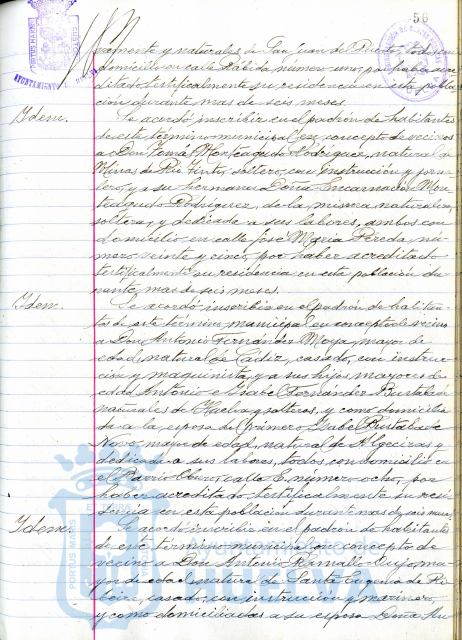 56
y naturales de San Juan del Puerto, todos con
domicilio en calle Rábida número uno, por haber acre-
ditado testificalmente su residencia en esta pobla-
ción durante mas de seis meses.
Idem.
Se acordó inscribir en el padrón de habitantes
de este término municipal en concepto de vecinos
a Don Tomás Monteagudo Rodríguez, natural de
Minas de Rio Tinto, soltero, con instrucción y jorna-
lero, y a su hermana Doña Encarnación Mon-
teagudo Rodríguez, de la misma naturaleza,
soltera, y dedicada a sus labores, ambos con
domicilio en calle José María Pereda, nú-
mero veinte y cinco, por haber acreditado
testificalmente su residencia en esta población du-
rante mas de seis meses.
Idem.
Se acordó inscribir en el padrón de habitan-
tes de este término municipal en concepto de vecino
a Don Antonio Fernández Moya, mayor de
edad, natural de Cádiz, casado, con instruc-
ción y maquinista, y a sus hijos mayores de
edad Antonio e Isabel Fernández
naturales de Huelva, solteros, y como domicilia-
da a la esposa del primero Isabel
mayor de edad, natural de Algeciras y
dedicada a sus labores, todos con domicilio en
el Barrio Obrero, calle E, número ocho, por
haber acreditado testificalmente su resi-
dencia en esta población durante mas de seis meses.
Idem.
Se acordó inscribir en el padrón de habitantes
de este término municipal en concepto de
vecino a Don Antonio ma-
yor de edad, natural de Santa Eugenia de Ri-
beira, casado, con instrucción y marinero,
y como domiciliadas a su esposa Doña
Ayuntamiento de
HUELVA
PORTUS MARIS